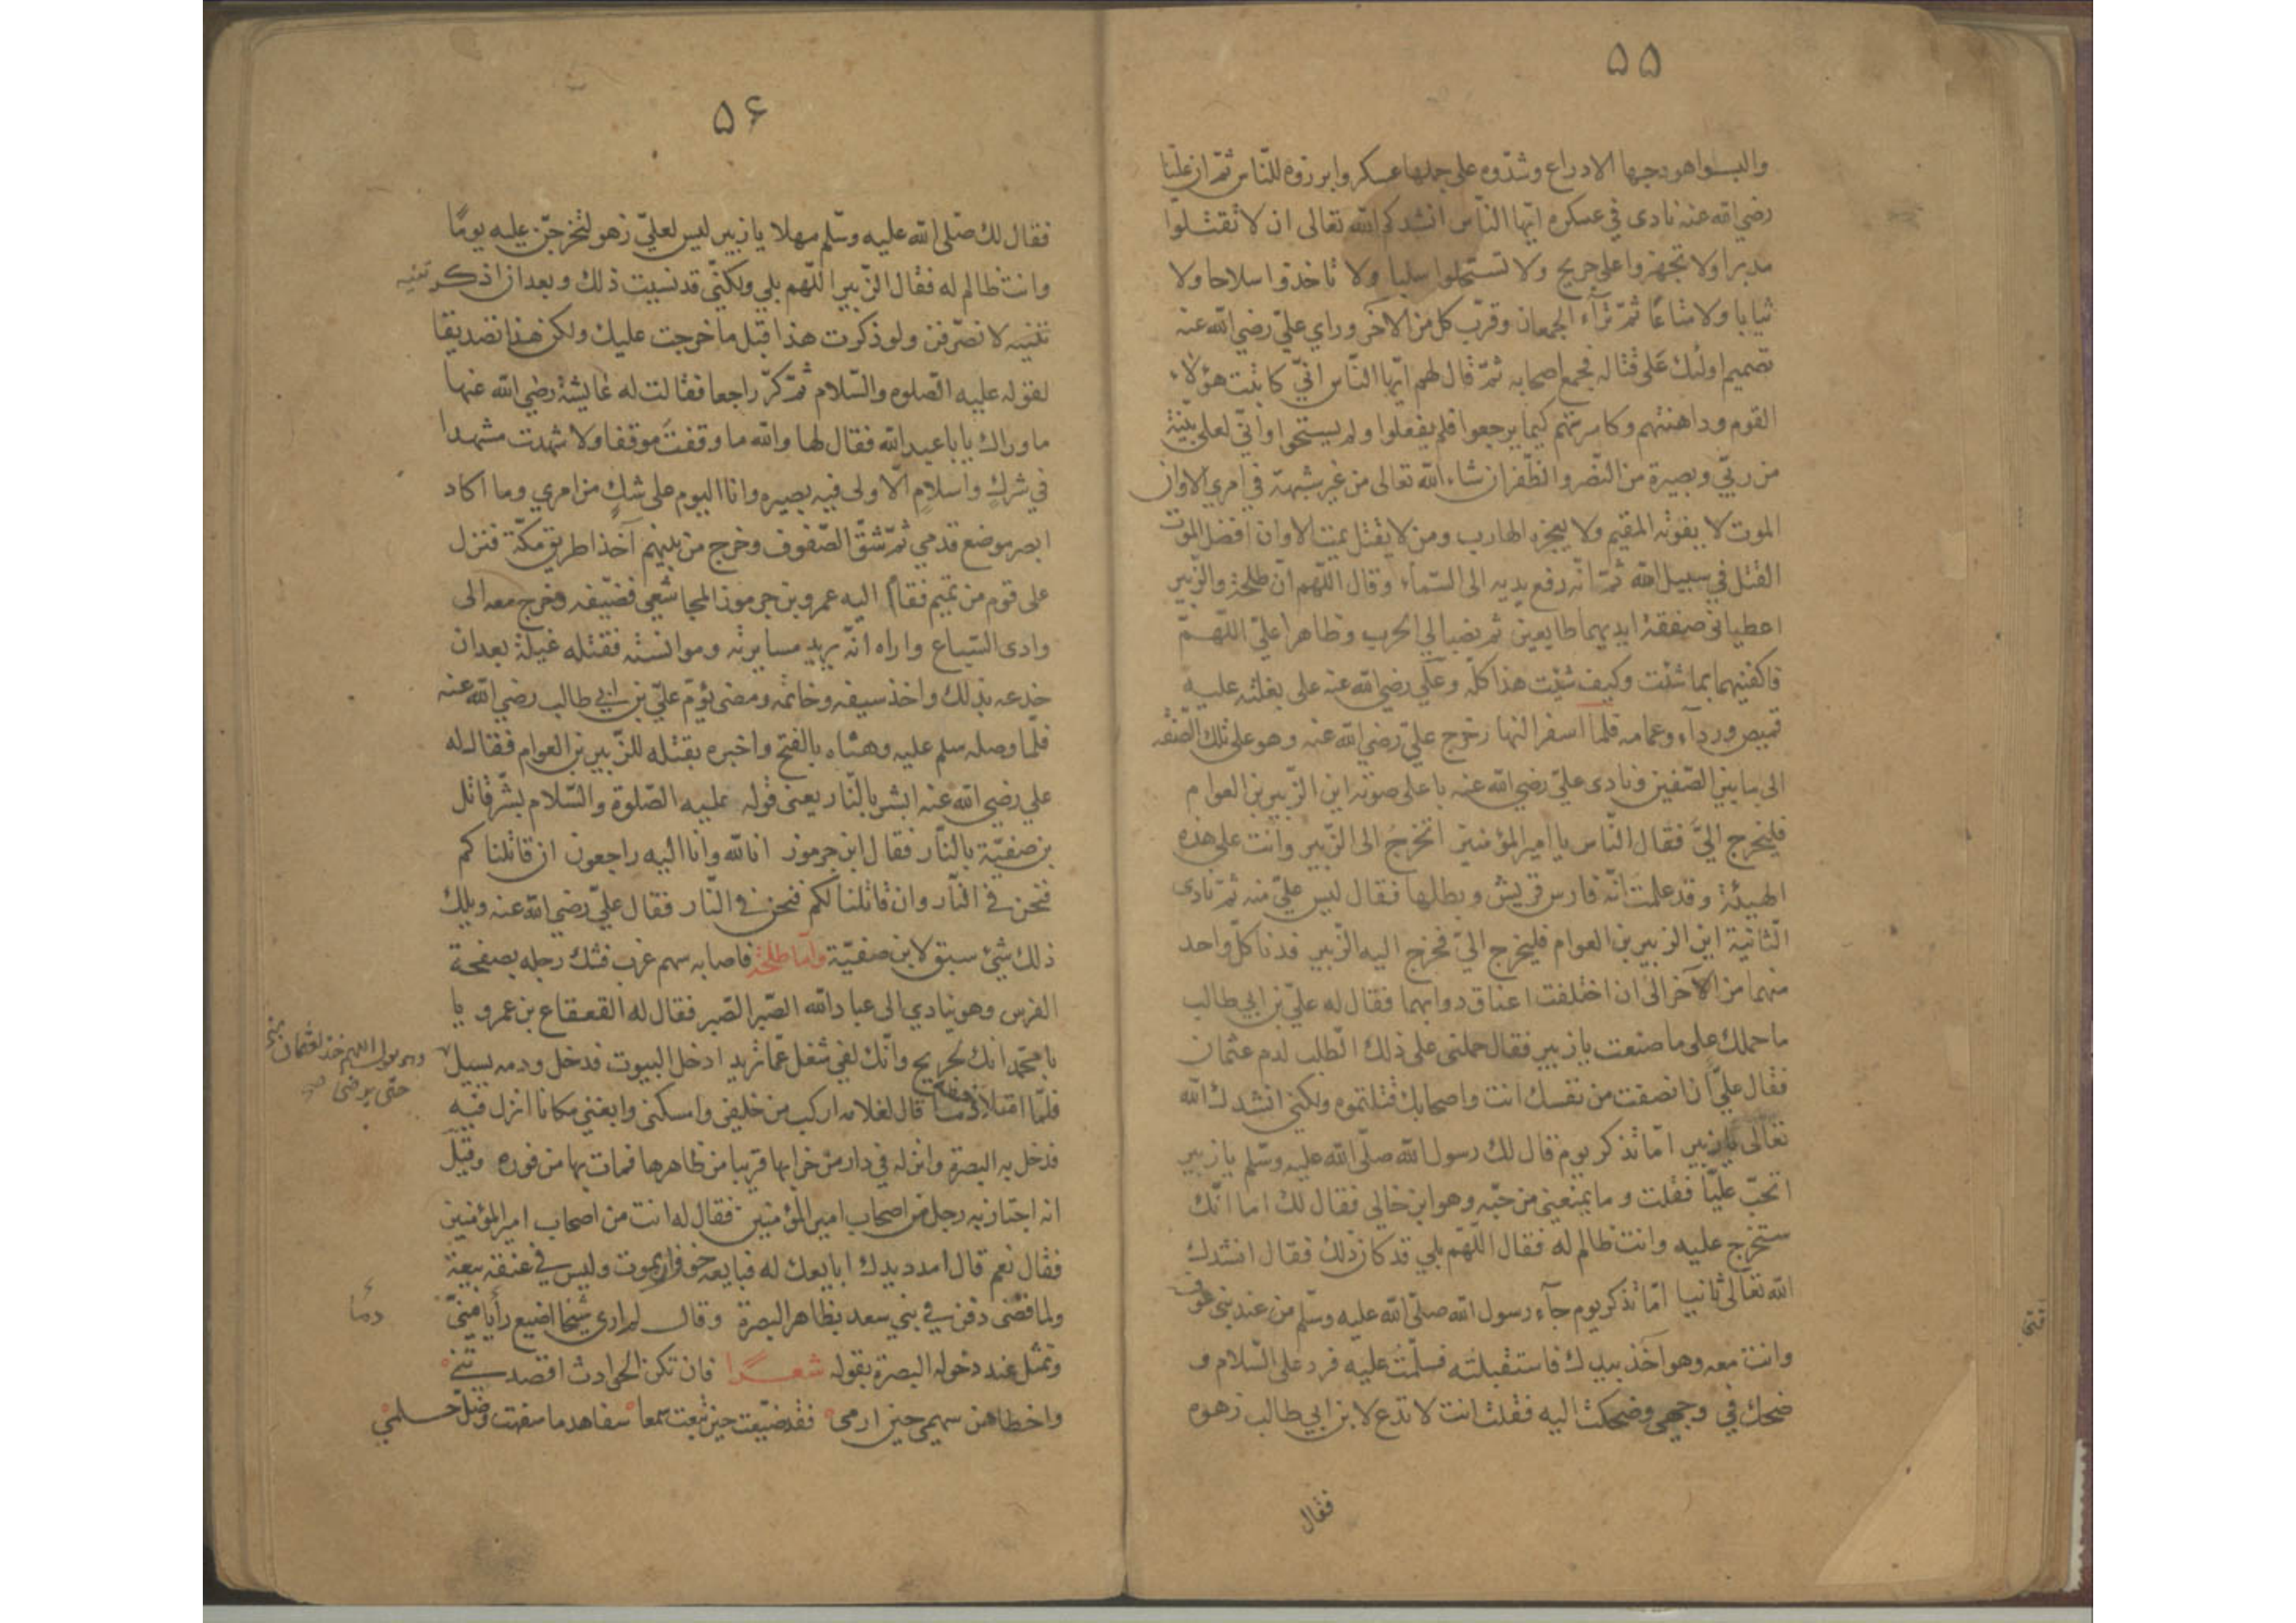 ۵۵
والبسوا هودجها الادراع وشدّوه على جملها عسكر وابرزوه للنّاس ثمّ ان عليّا
رضي الله عنه نادى في عسكره ايّها النّاس انشدكم الله تعالى ان لا تقتلوا
مدبرا ولا تجهزوا على جريح ولا تستحلوا سلبا ولا تاخذوا سلاحا ولا
ثيابا ولا متاعًا ثمّ ترآء الجمعان وقرّب كل من الآخر وراي عليّ رضي الله عنه
تصميم اولئك على قتاله فجمع اصحابه ثمّ قال لهم ايّها النّاس انّي كاتبت هؤلاء
القوم وداهنتهم وكاسرتهم كيما يرجعوا فلم يفعلوا ولم يستحيوا وانّي لعلى بيّنة
من ربّي وبصيرة من النّصر والظّفر ان شاء الله تعالى من غير شبهة في امري الا وان
الموت لا يفوته المقيم ولا يعجزه الهارب ومن لا يقتل يمت الا وان افضل الموت
القتل في سبيل الله ثمّ انّه رفع يديه الى السّماء وقال اللّهم انّ طلحة والزّبير
اعطياني صفقة ايديهما طايعين ثم نصبا لي الحرب وظاهرا عليّ اللّهمّ
فاكفنيهما بما شئت وكيف شئت هذا كلّه وعلي رضي الله عنه على بغلته عليه
قميص وردآء وعمامه فلما اسفر النهار خرج عليّ رضي الله عنه وهو على تلك الصّفه
الى ما بين الصّفين ونادى عليّ رضي الله عنه باعلى صوته اين الزّبير بن العوام
فليخرج اليّ فقال النّاس يا امير المؤمنين اتخرجُ الى الزّبير وانت على هذه
الهيئة وقد علمت انّه فارس قريش وبطلها فقال ليس عليّ منه ثمّ نادى
الثّانية اين الزبير بن العوام فليخرج اليّ فخرج اليه الزّبير فدنا كلّ واحد
منهما من الآخر الى ان اختلفت اعناق دوابهما فقال له عليّ بن ابي طالب
ما حملك على ما صنعت يا زبير فقال حملني على ذلك الطّلب لدم عثمان
فقال عليّ ان انصفت من نفسك انت واصحابك قتلتموه ولكني انشدك الله
تعالى يا زبير امّا تذكر يوم قال لك رسول الله صلّى الله عليه وسلّم يا زبير
اتحبّ عليّا فقلت وما يمنعني من حبّه وهو ابن خالي فقال لك اما انّك
ستخرج عليه وانت ظالم له فقال اللّهمّ بلي قد كان ذلك فقال انشدك
الله تعالى ثانيا امّا تذكر يوم جآء رسول الله صلّى الله عليه وسلّم من عند بني عوف
وانت معه وهو آخذ بيدك فاستقبلته فسلّمتُ عليه فرد على السّلام و
ضحك في وجهي وضحكت اليه فقلت انت لا تدع لا بن ابي طالب زهوه
فقال
۵۶
فقال لك صلّى الله عليه وسلّم مهلا يا زبير ليس لعليّ زهو لتخرجنّ عليه يومًا
وانت ظالم له فقال الزّبير اللّهم بلي ولكنّي قد نسيت ذلك وبعد ان اذكرتنيه
لا نصرّفن ولو ذكرت هذا قبل ما خرجت عليك ولكن هذا تصديقا
لقوله عليه الصّلوه والسّلام ثمّ كرّ راجعا فقالت له عايشة رضي الله عنها
ما وراك يا با عبد الله فقال لها والله ما وقفتُ موقفا ولا شهدت مشهدا
في شركٍ واسلامٍ الّا ولى فيه بصيره وانا اليوم على شكٍ من امري وما اكاد
ابصر موضع قدمي ثمّ شقّ الصّفوف وخرج من بينهم آخذا طريق مكّة فنزل
على قوم من تميم فقام اليه عمرو بن جرموز المجاشعي فضيّفه وخرج معه الى
وادى السّباع واراه انّه يريد مسايرته وموانسته فقتله غيلة بعد ان
خدعه بذلك واخذ سيفه وخاتمه ومضى يؤمّ عليّ بن ابي طالب رضي الله عنه
فلمّا وصله سلم عليه وهنّاه بالفتح واخبره بقتله للزّبير بن العوام فقال له
علي رضي الله عنه ابشر بالنّار يعنى قوله عليه الصّلوة والسّلام بشّر قاتل
بن صفيّة بالنّار فقال ابن جرموز انا لله وانا اليه راجعون ان قاتلناكم
فنحن في النّار وان قاتلنا لكم فنحن في النّار فقال عليّ رضي الله عنه ويلك
ذلك شئ سبق لابن صفيّة وامّا طلحة فاصابه سهم غرب فشك رجله بصفحة
الفرس وهو ينادي الى عباد الله الصّبر الصّبر فقال له القعقاع بن عمرو يا
با محمّد انك لجريح وانّك لفي شغل عمّا تريد ادخل البيوت فدخل ودمه يسيل
اللهم خذ لعثمان
حتّى يرضى
فلمّا امتلا قال لغلامه اركب من خليفى واسكنى وابغني مكانا انزل فيه
فدخل به البصرة وانزله في دار من خرابها قريبا من ظاهرها فمات بها من فوره وقيل
انه اجتاز به رجل من اصحاب امير المؤمنين فقال له انت من اصحاب امير المؤمنين
فقال نعم قال امدد يدك ابايعك له فبايعه خوفا ان يموت وليس في عنقه بيعة
ولما قضى دفن في بني سعد بظاهر البصرة وقال لم ار ى شيخا اضيع رأيا منّي
دمًا
وتمثّل عند دخوله البصرة بقوله شعرا فان تكن الحوادث اقصدتني
واخطاهن سهمي حين ارمى فقد ضيّعت حين تبعت سهما سفاها ما سفهت وضلّ حلمي